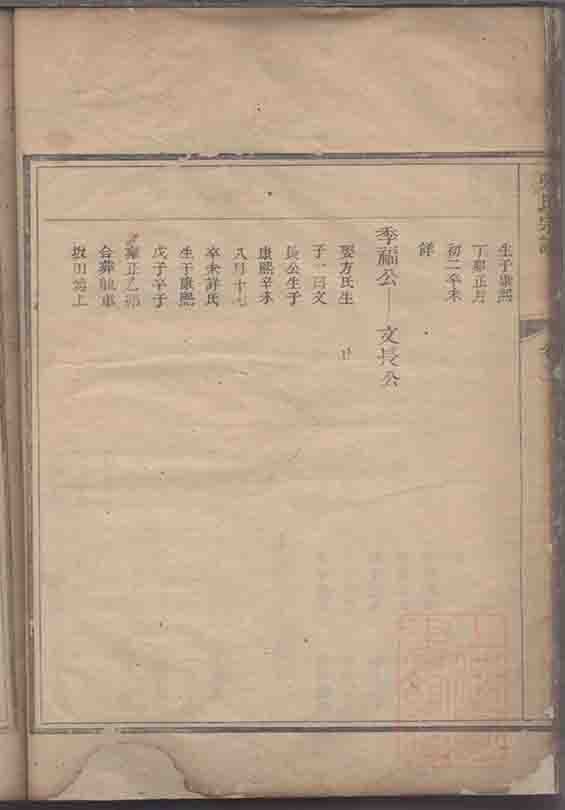 氏宗譜
生于康熙
丁卯正月
初二卒未
詳
季福公—文長公
娶方氏生 止
子一曰文
長公生于
康熙辛未
八月十七
卒未詳氏
生于康熙
戊子卒于
雍正乙卯
合葬
坂田塆上